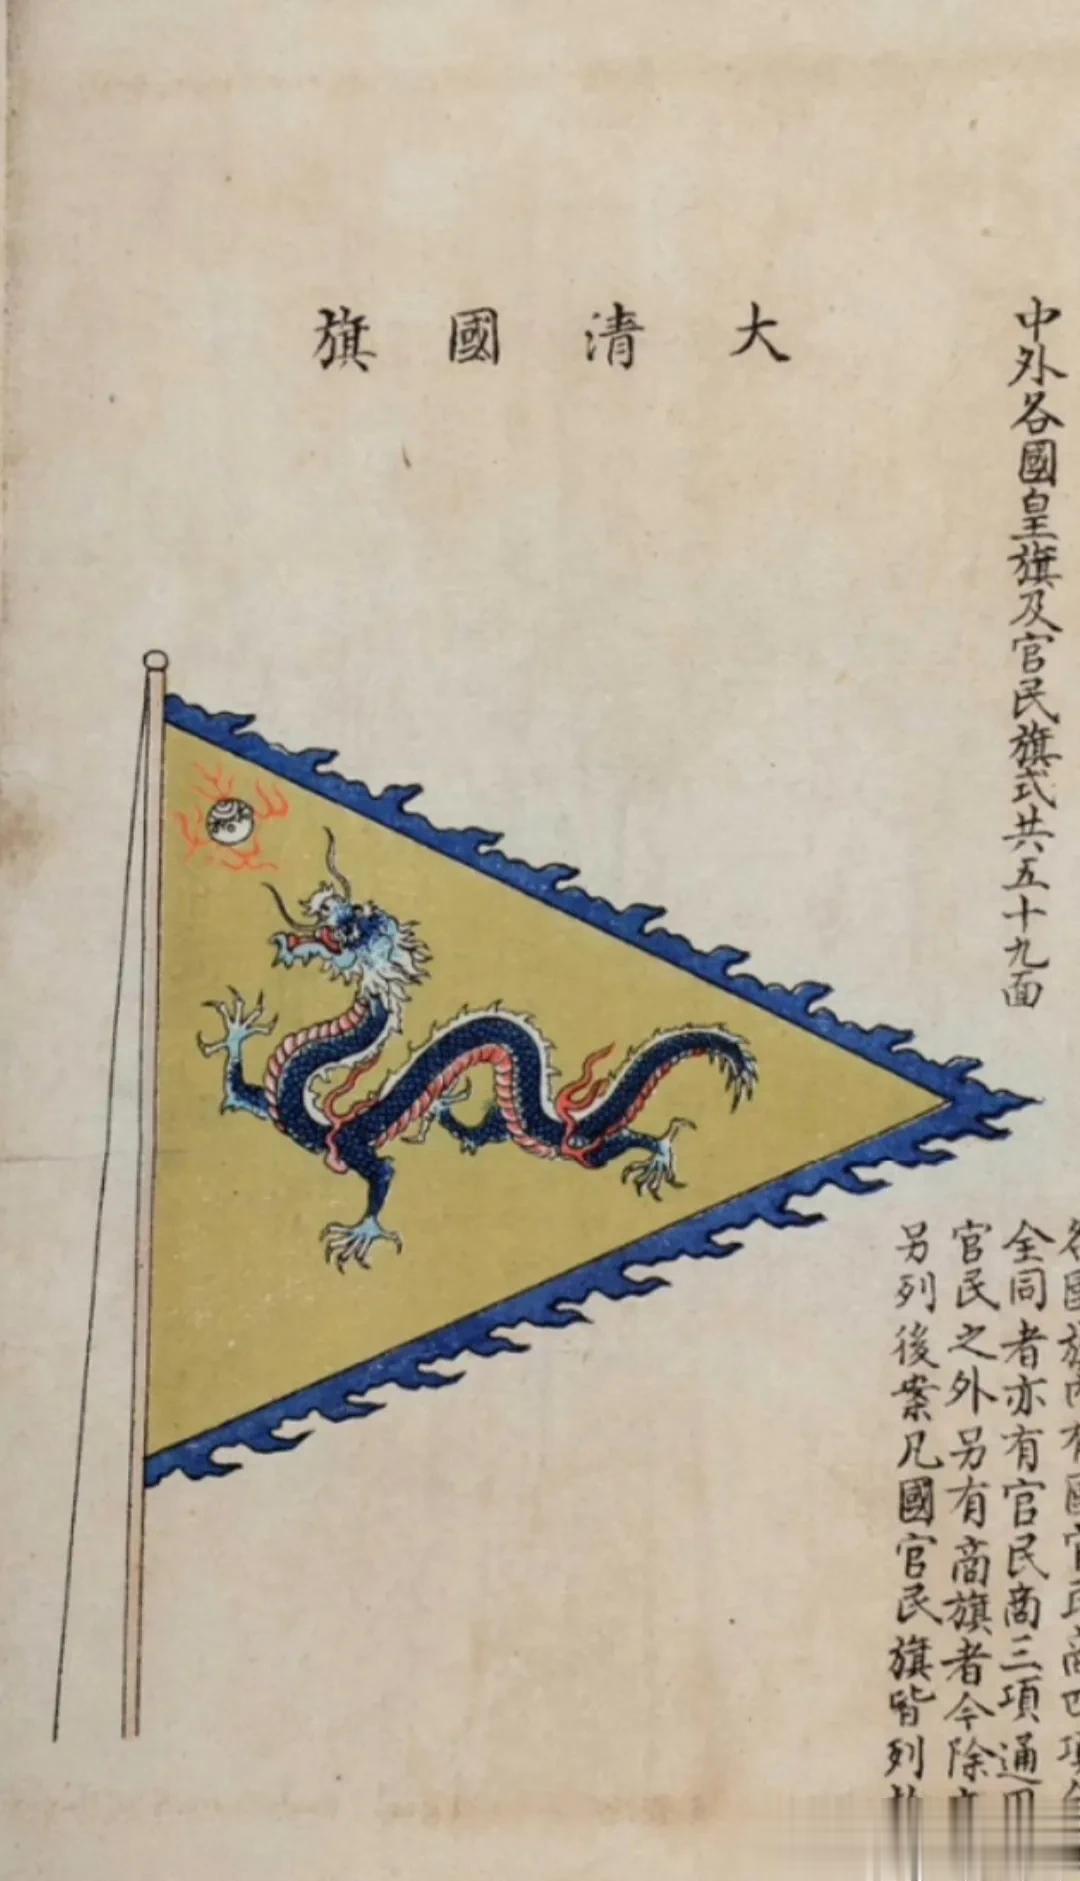 中外各國皇旗及官民旗式共五十九面
各國旗內有國官民商四項
全同者亦有官民商三項通
官民之外另有商旗者今除
另列後案凡國官民旗皆列
大清國旗